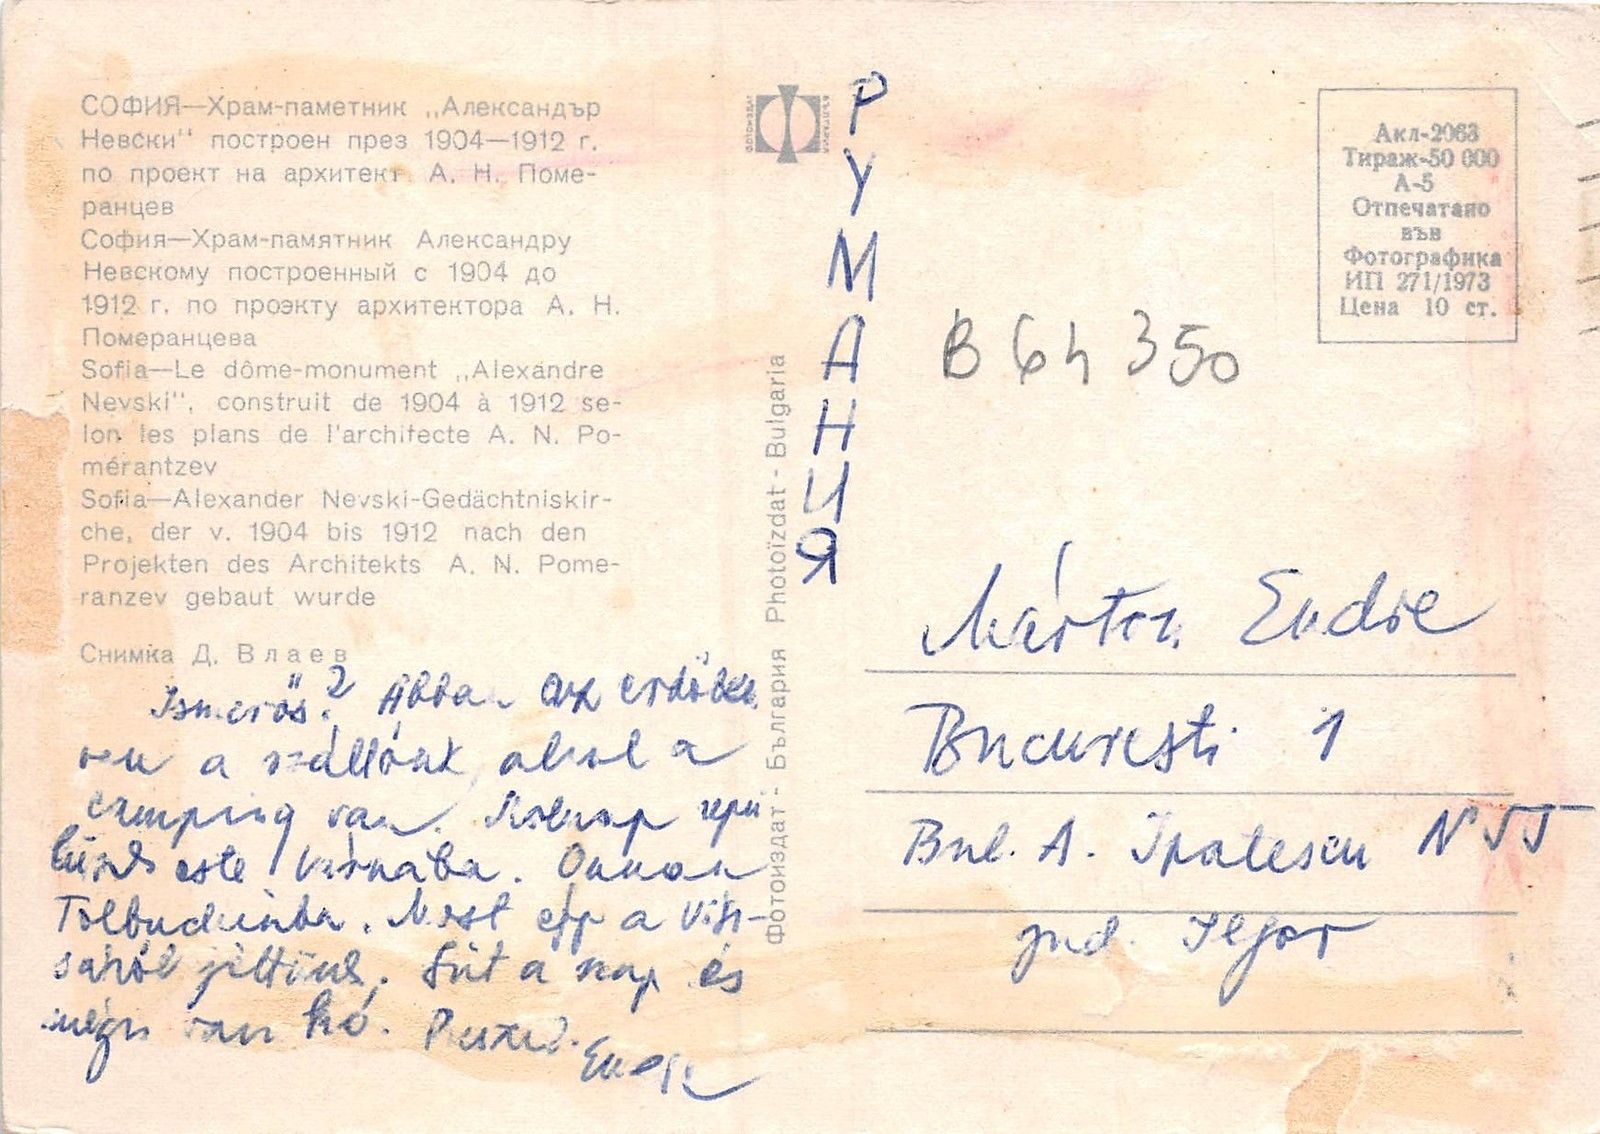 СОФИЯ—Храм-паметник „Александър
Невски" построен през 1904—1912 г.
по проект на архитект А. Н. Поме-
ранцев
София—Храм-памятник Александру
Невскому построенный с 1904 до
1912 г. по проэкту архитектора А. Н.
Померанцева
Sofia—Le dôme-monument „Alexandre
Nevski", construit de 1904 à 1912 se-
lon les plans de l'architecte A. N. Po-
mérantzev
Sofia—Alexander Nevski-Gedächtniskir-
che, der v. 1904 bis 1912 nach den
Projekten des Architekts A. N. Pome-
ranzev gebaut wurde
Снимка Д. Влаев
Ismerős? Abban az erdőben
van a szállónk, ahol a
camping van. Holnap repü
lünk este Várnába. Onnan
Tolbuchinba. Most épp a Vito-
sáról jöttünk. Süt a nap és
mégis van hó. Puszil.
ФОТОИЗДАТ
БЪЛГАРИЯ
Фотоиздат - България Photoïzdat - Bulgaria
РУМАНИЯ
Акл-2063
Тираж-50 000
А-5
Отпечатано
във
Фотографика
ИП 271/1973
Цена 10 ст.
B 64 350
Márton Endre
Bucuresti 1
Bul. A. Ipatescu N°
jud. Ilfov